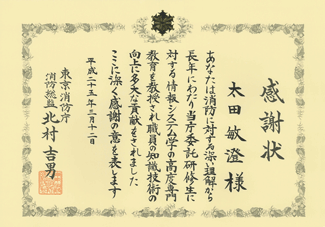 感謝状
太田敏澄様
あなたは消防に対する深い理解から
長年にわたり当庁委託研修生に
対する情報システム学の高度専門
教育を教授され職員の知識技術の
向上に多大な貢献をされました
ここに深く感謝の意を表します
平成二十五年三月十二日
東京消防庁
消防総監 北村吉男